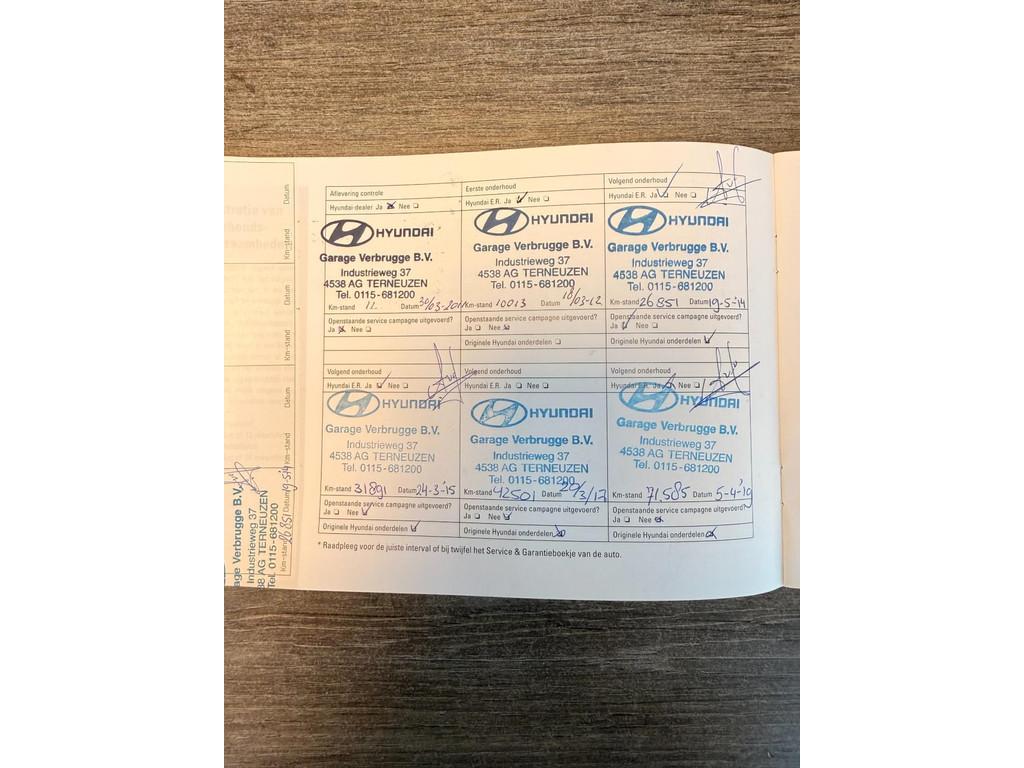 Aflevering controle
Hyundai-dealer Ja ☒ Nee ☐
HYUNDAI
Garage Verbrugge B.V.
Industrieweg 37
4538 AG TERNEUZEN
Tel. 0115-681200
Km-stand 11 Datum 30/03-2011
Openstaande service campagne uitgevoerd?
Ja ☒ Nee ☐
Eerste onderhoud
Hyundai E.R. Ja ☑ Nee ☐
HYUNDAI
Garage Verbrugge B.V.
Industrieweg 37
4538 AG TERNEUZEN
Tel. 0115-681200
Km-stand 10013 Datum 18/03-12
Openstaande service campagne uitgevoerd?
Ja ☐ Nee ☒
Originele Hyundai onderdelen ☐
Volgend onderhoud
Hyundai E.R. Ja ☑ Nee ☐
HYUNDAI
Garage Verbrugge B.V.
Industrieweg 37
4538 AG TERNEUZEN
Tel. 0115-681200
Km-stand 26851 Datum 19-5-'14
Openstaande service campagne uitgevoerd?
Ja ☑ Nee ☐
Originele Hyundai onderdelen ☑
Volgend onderhoud
Hyundai E.R. Ja ☑ Nee ☐
HYUNDAI
Garage Verbrugge B.V.
Industrieweg 37
4538 AG TERNEUZEN
Tel. 0115-681200
Km-stand 31891 Datum 24-3-'15
Openstaande service campagne uitgevoerd?
Ja ☐ Nee ☑
Originele Hyundai onderdelen ☑
Volgend onderhoud
Hyundai E.R. Ja ☐ Nee ☐
HYUNDAI
Garage Verbrugge B.V.
Industrieweg 37
4538 AG TERNEUZEN
Tel. 0115-681200
Km-stand 42501 Datum 20/3/17
Openstaande service campagne uitgevoerd?
Ja ☐ Nee ☑
Originele Hyundai onderdelen ☒
Volgend onderhoud
Hyundai E.R. Ja ☑ Nee ☐
HYUNDAI
Garage Verbrugge B.V.
Industrieweg 37
4538 AG TERNEUZEN
Tel. 0115-681200
Km-stand 71.585 Datum 5-4-'19
Openstaande service campagne uitgevoerd?
Ja ☐ Nee ☒
Originele Hyundai onderdelen ☒
* Raadpleeg voor de juiste interval of bij twijfel het Service & Garantieboekje van de auto.
Km-stand Datum
Km-stand Datum
Km-stand Datum
Km-stand 26851 Datum 19-5-14
Verbrugge B.V.
Industrieweg 37
38 AG TERNEUZEN
Tel. 0115-681200